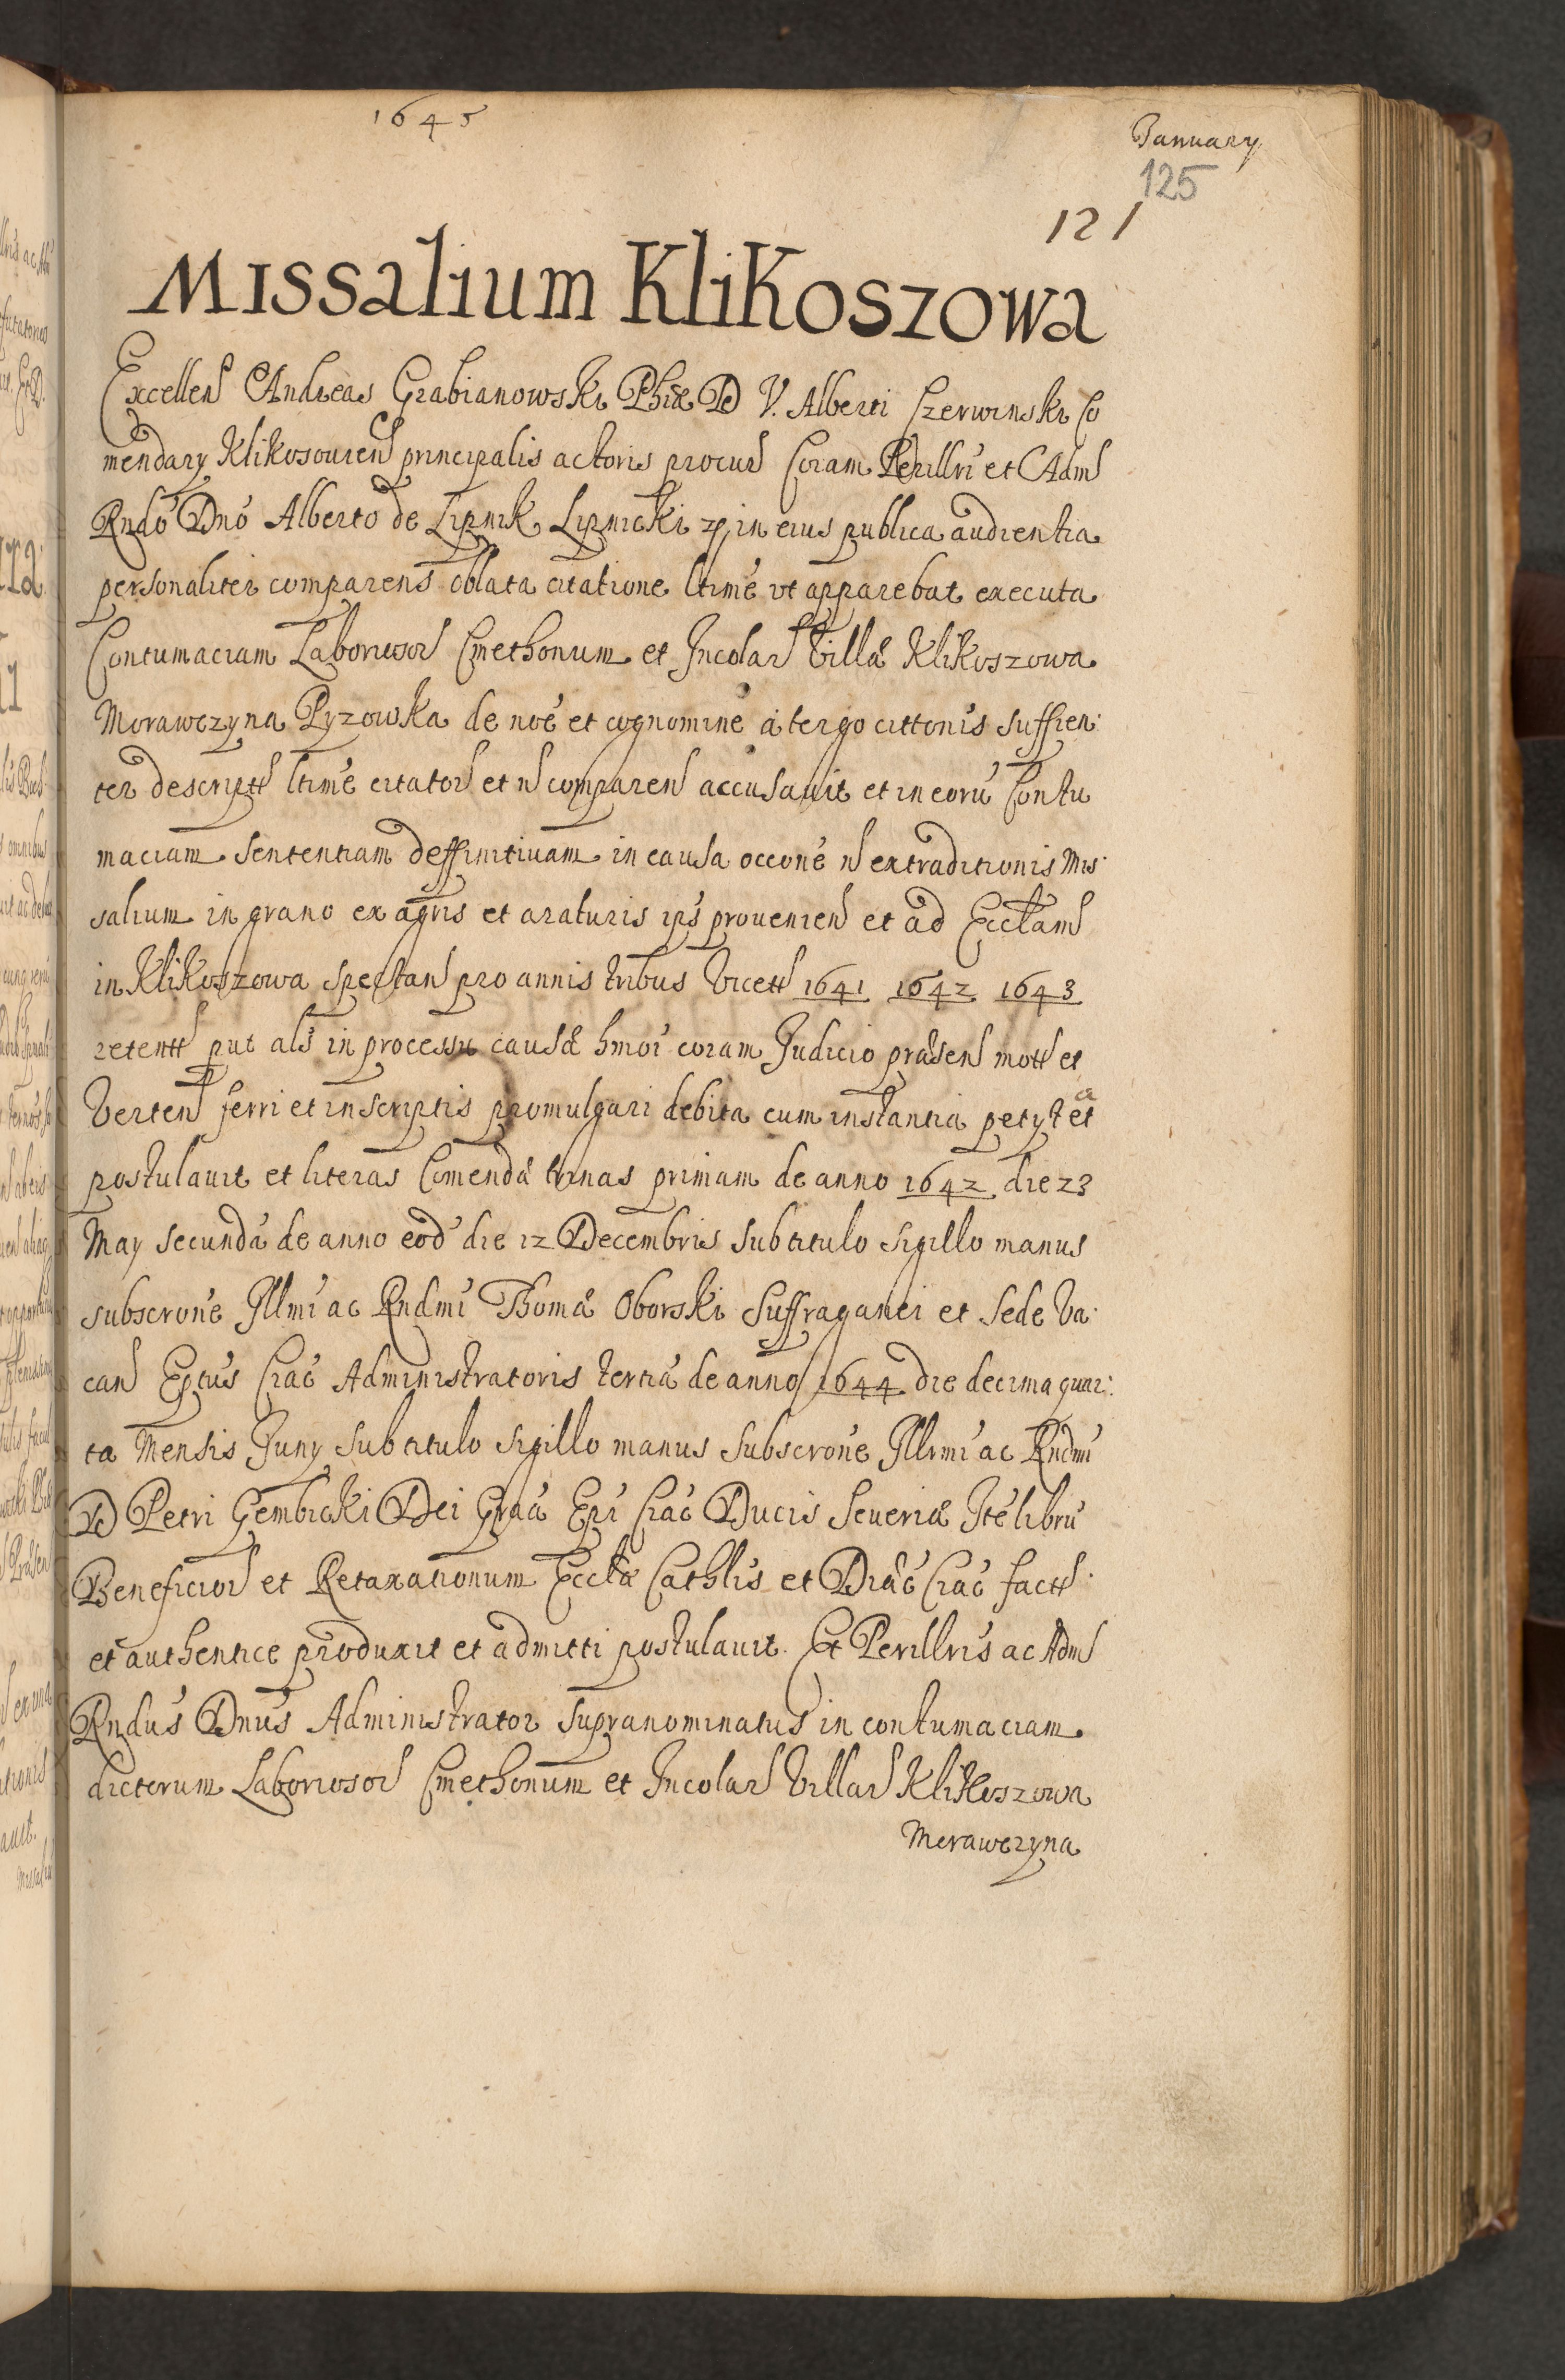 1645
January
125
121
Missalium Klikoszowa
Excellen Andreas Grabianowski Phiæ D V. Alberti Czerwinski Co
mendary Klikosouien principalis actoris procur Coram Perillri et Adm
Rndo Dno Alberto de Lipnik Lipnicki in eius publica audientia
personaliter comparens oblata citatione ltime vt apparebat executa
Contumaciam Laborioso Cmethonum et Incolar Villæ Klikoszowa
Morawczyna Pyzowka de noe et cognomine a tergo cittonis suffien
ter descriptt ltime citator et n comparen accusauit et in eoru Contu
maciam sententiam deffinitiuam in causa occone n extraditionis Mis
salium in grano ex agris et araturis ips prouenien et ad Ecclam
in Klikoszowa spectan pro annis tribus vicett 1641 1642 1643
retentt put als in processu causæ hmoi coram Judicio præsen mott et
Verten ferri et in scriptis promulgari debita cum instantia petyt et
postulauit et literas Comendæ trinas primam de anno 1642 die 23
May secundā de anno eod die 12 Decembris sub titulo sigillo manus
subscrone Illmi ac Rndmi Thomæ Oborski Suffraganei et Sede Va
can Eptus Crac Administratoris tertiā de anno 1644 die decima quar
ta Mensis Juny sub titulo sigillo manus subscrone Illrmi ac Rndmi
D Petri Gembicki Dei Graā Epi Crac Ducis Seueriæ Ite libru
Beneficior et Retaxationum Ecclæ Cathlis et Diæc Crac factt
et authentice produxit et admitti postulauit. Et Perillris ac Adm
Rndus Dnus Administrator supranominatus in contumaciam
dictorum Laboriosor Cmethonum et Incolar Villar Klikoszowa
Morawczyna